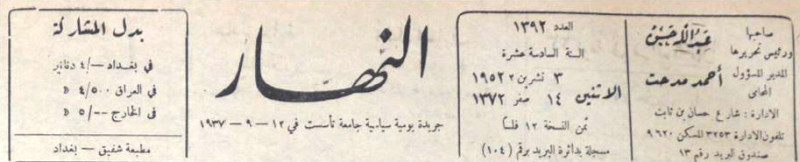 صاحبها
ورئيس تحريرها
المدير المسؤول
المحامي
أحمد مدحت
الادارة : شارع حسان بن ثابت
تلفون الادارة ٣٢٥٣ المسكن ٩٦٢٠
صندوق البريد رقم ١٣
العدد ١٣٩٢
السنة السادسة عشرة
الاثنين
٣ تشرين ٢ ١٩٥٢
١٤ صفر ١٣٧٢
ثمن النسخة ١٢ فلساً
مسجلة بدائرة البريد برقم (١٠٤)
النهار
جريدة يومية سياسية جامعة تأسست في ١٢ - ٩ - ١٩٣٧
بدل المشاركة
في بغداد -/٤ دنانير
في العراق ٤/٥٠٠ »
في الخارج --/٥ »
مطبعة شفيق - بغداد